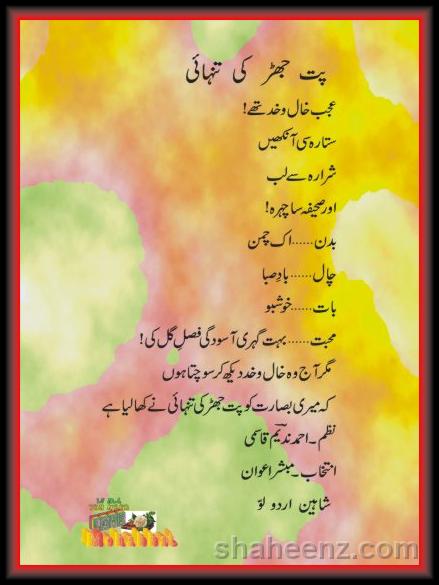 پت جھڑ کی تنہائی
عجب خال و خد تھے!
ستارہ سی آنکھیں
شرارہ سے لب
اور صحیفہ سا چہرہ!
بدن......اک چمن
چال......بادِ صبا
بات......خوشبو
محبت......بہت گہری آسودگی فصلِ گل کی!
مگر آج وہ خال و خد دیکھ کر سوچتا ہوں
کہ میری بصارت کو پت جھڑ کی تنہائی نے کھا لیا ہے
نظم۔احمد ندیم قاسمی
انتخاب۔مبشر اعوان
شاہین اردو لوّ
shaheenz.com